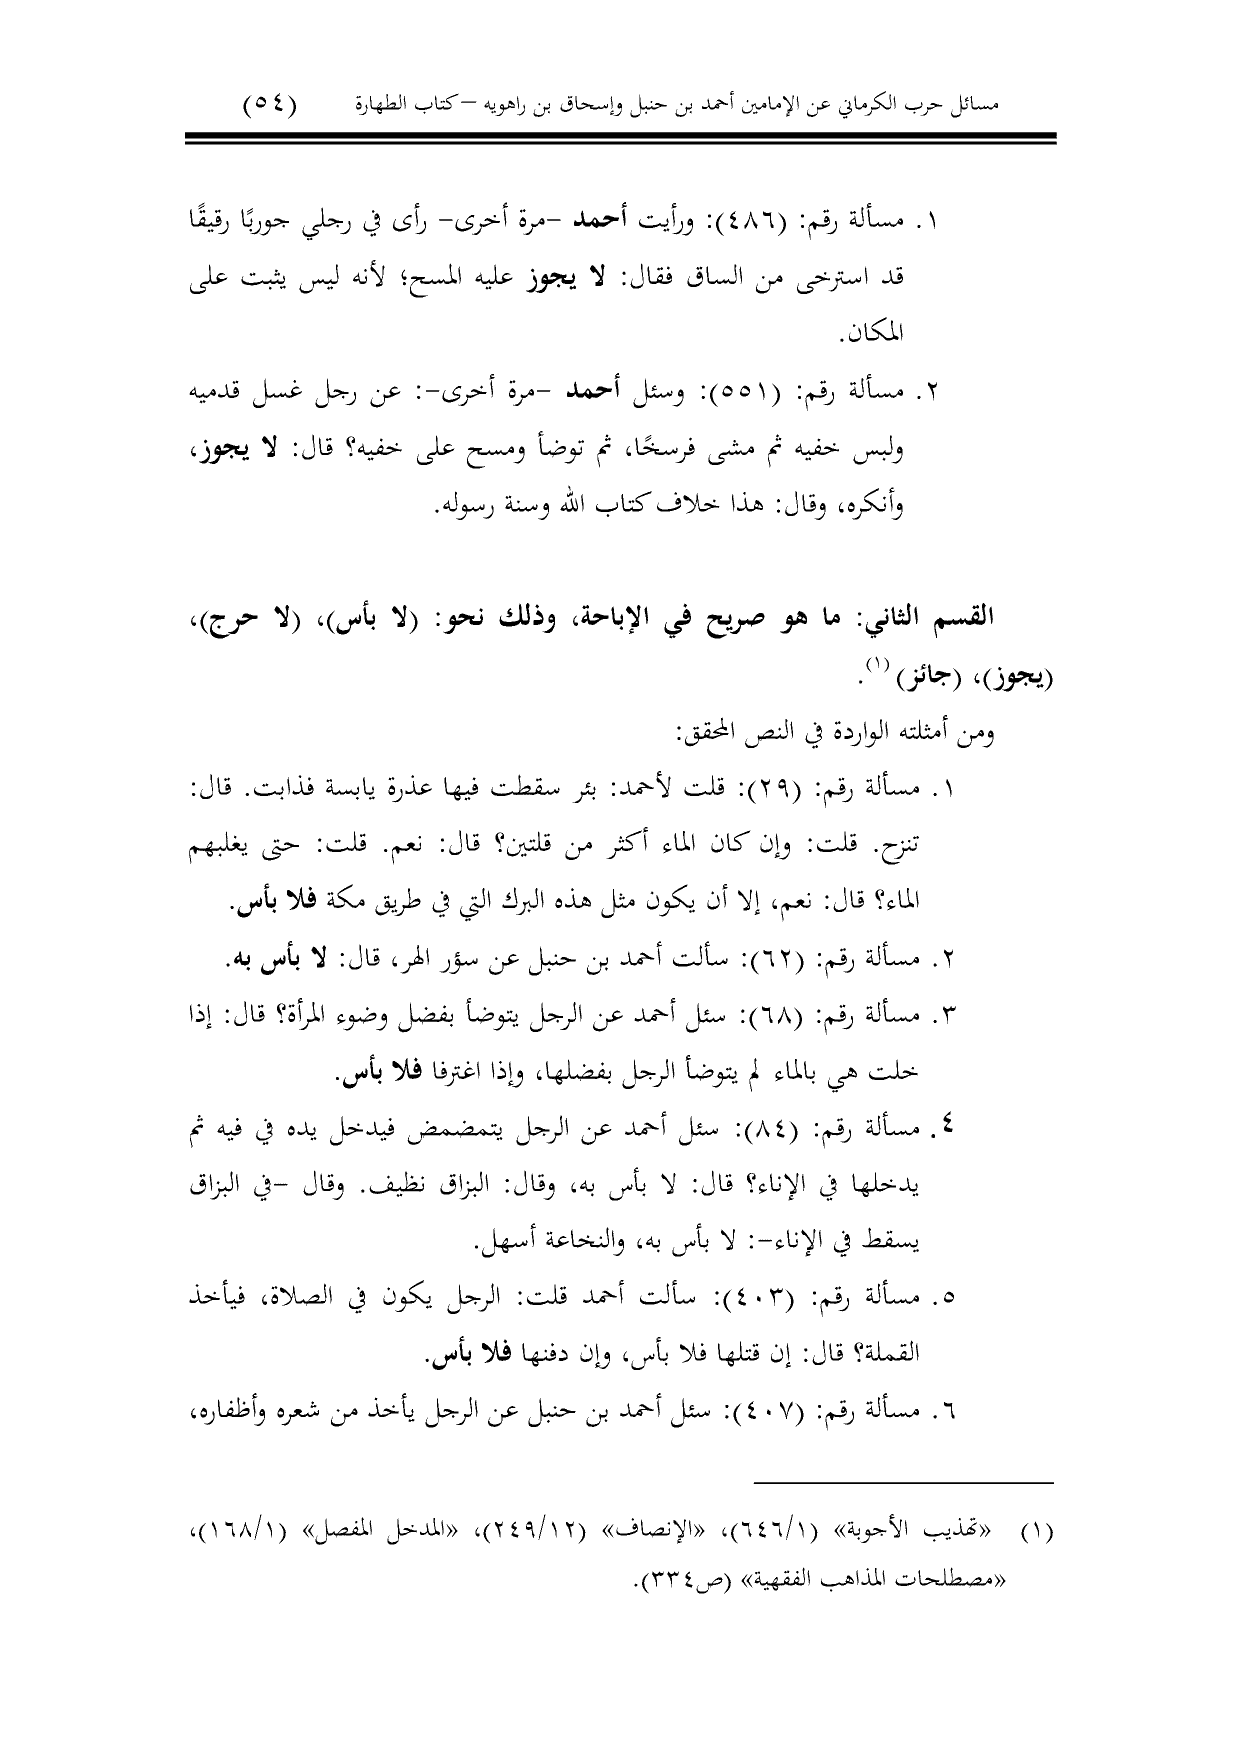 مسائل حرب الكرماني عن الإمامين أحمد بن حنبل وإسحاق بن راهويه –كتاب الطهارة (٥٤)
١. مسألة رقم: (٤٨٦): ورأيت أحمد –مرة أخرى– رأى في رجلي جوربًا رقيقًا
قد استرخى من الساق فقال: لا يجوز عليه المسح؛ لأنه ليس يثبت على
المكان.
٢. مسألة رقم: (٥٥١): وسئل أحمد –مرة أخرى–: عن رجل غسل قدميه
ولبس خفيه ثم مشى فرسخًا، ثم توضأ ومسح على خفيه؟ قال: لا يجوز،
وأنكره، وقال: هذا خلاف كتاب الله وسنة رسوله.
القسم الثاني: ما هو صريح في الإباحة، وذلك نحو: (لا بأس)، (لا حرج)،
(يجوز)، (جائز) (١).
ومن أمثلته الواردة في النص المحقق:
١. مسألة رقم: (٢٩): قلت لأحمد: بئر سقطت فيها عذرة يابسة فذابت. قال:
تنزح. قلت: وإن كان الماء أكثر من قلتين؟ قال: نعم. قلت: حتى يغلبهم
الماء؟ قال: نعم، إلا أن يكون مثل هذه البرك التي في طريق مكة فلا بأس.
٢. مسألة رقم: (٦٢): سألت أحمد بن حنبل عن سؤر الهر، قال: لا بأس به.
٣. مسألة رقم: (٦٨): سئل أحمد عن الرجل يتوضأ بفضل وضوء المرأة؟ قال: إذا
خلت هي بالماء لم يتوضأ الرجل بفضلها، وإذا اغترفا فلا بأس.
٤. مسألة رقم: (٨٤): سئل أحمد عن الرجل يتمضمض فيدخل يده في فيه ثم
يدخلها في الإناء؟ قال: لا بأس به، وقال: البزاق نظيف. وقال –في البزاق
يسقط في الإناء–: لا بأس به، والنخاعة أسهل.
٥. مسألة رقم: (٤٠٣): سألت أحمد قلت: الرجل يكون في الصلاة، فيأخذ
القملة؟ قال: إن قتلها فلا بأس، وإن دفنها فلا بأس.
٦. مسألة رقم: (٤٠٧): سئل أحمد بن حنبل عن الرجل يأخذ من شعره وأظفاره،
(١) «تهذيب الأجوبة» (٦٤٦/١)، «الإنصاف» (٢٤٩/١٢)، «المدخل المفصل» (١٦٨/١)،
«مصطلحات المذاهب الفقهية» (ص٣٣٤).